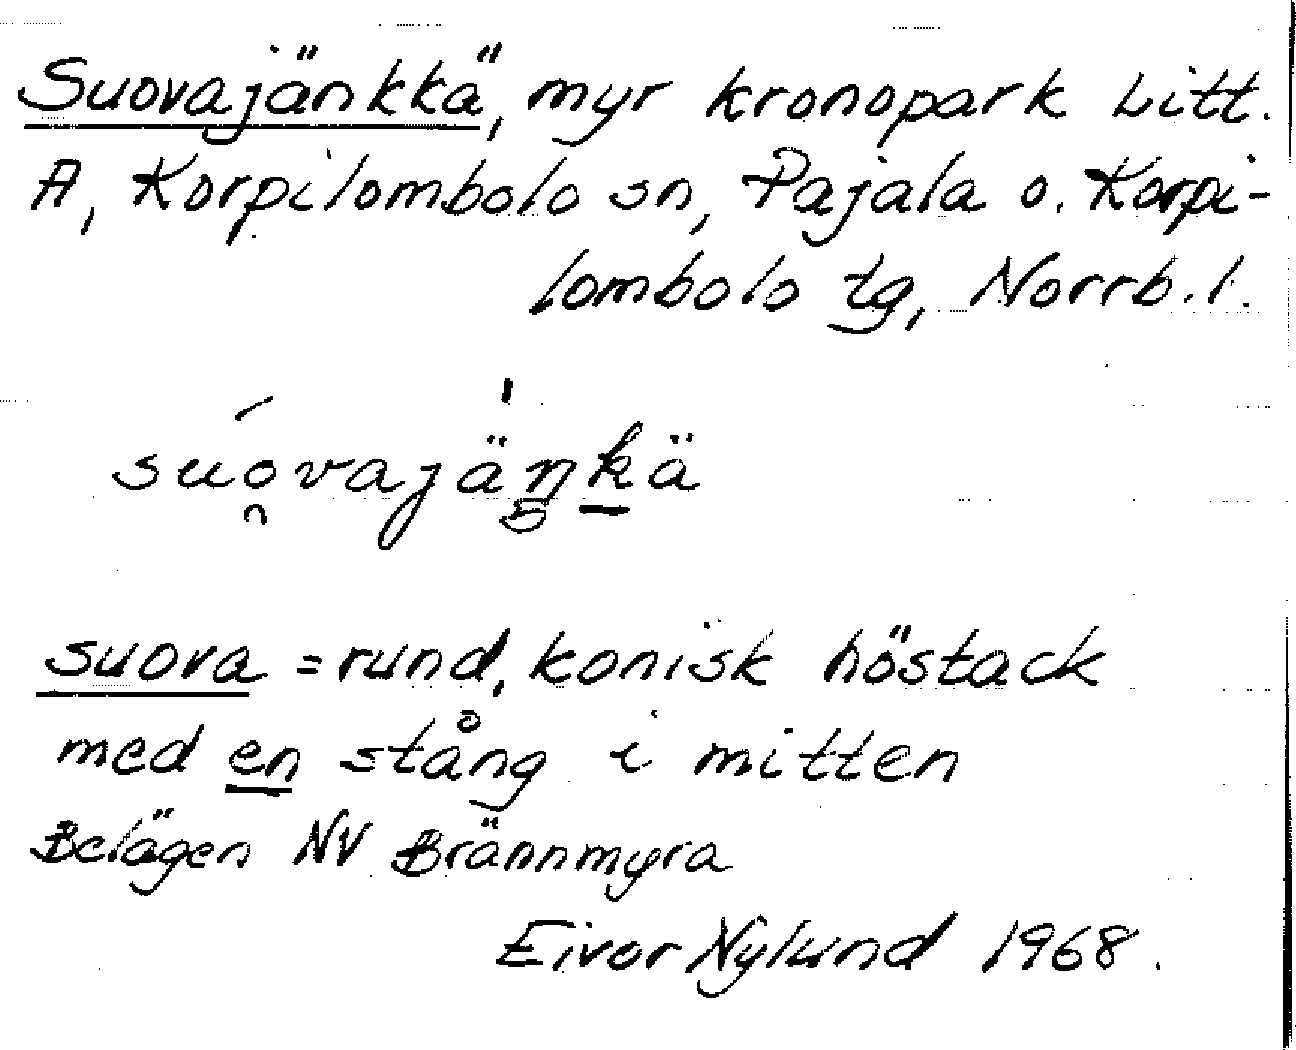 Suovajänkkä, myr kronopark Litt.
A, Korpilombolo sn, Pajala o. Korpi-
lombolo tg, Norrb. l.
suo̯vajäŋkä
suova = rund, konisk höstack
med en stång i mitten
Belägen NV Brännmyra
Eivor Nylund 1968.